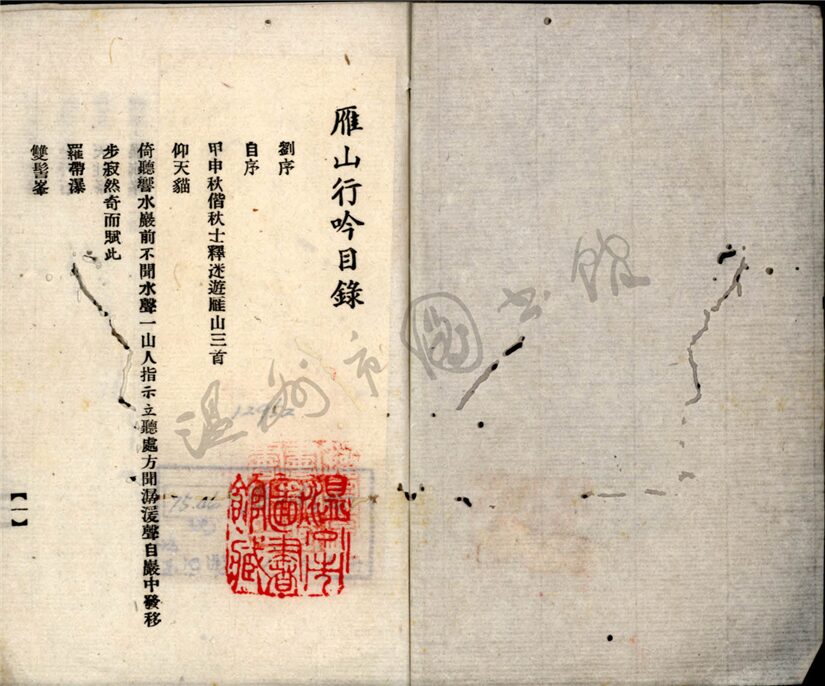 雁山行吟目錄
劉序
自序
甲申秋偕秋士釋迷遊雁山三首
仰天貓
倚聽響水巖前不聞水聲一山人指示立聽處方聞潺湲聲自巖中發移
步寂然奇而賦此
羅帶瀑
雙髻峯
【一】
溫州市圖書館藏
溫州市圖書館